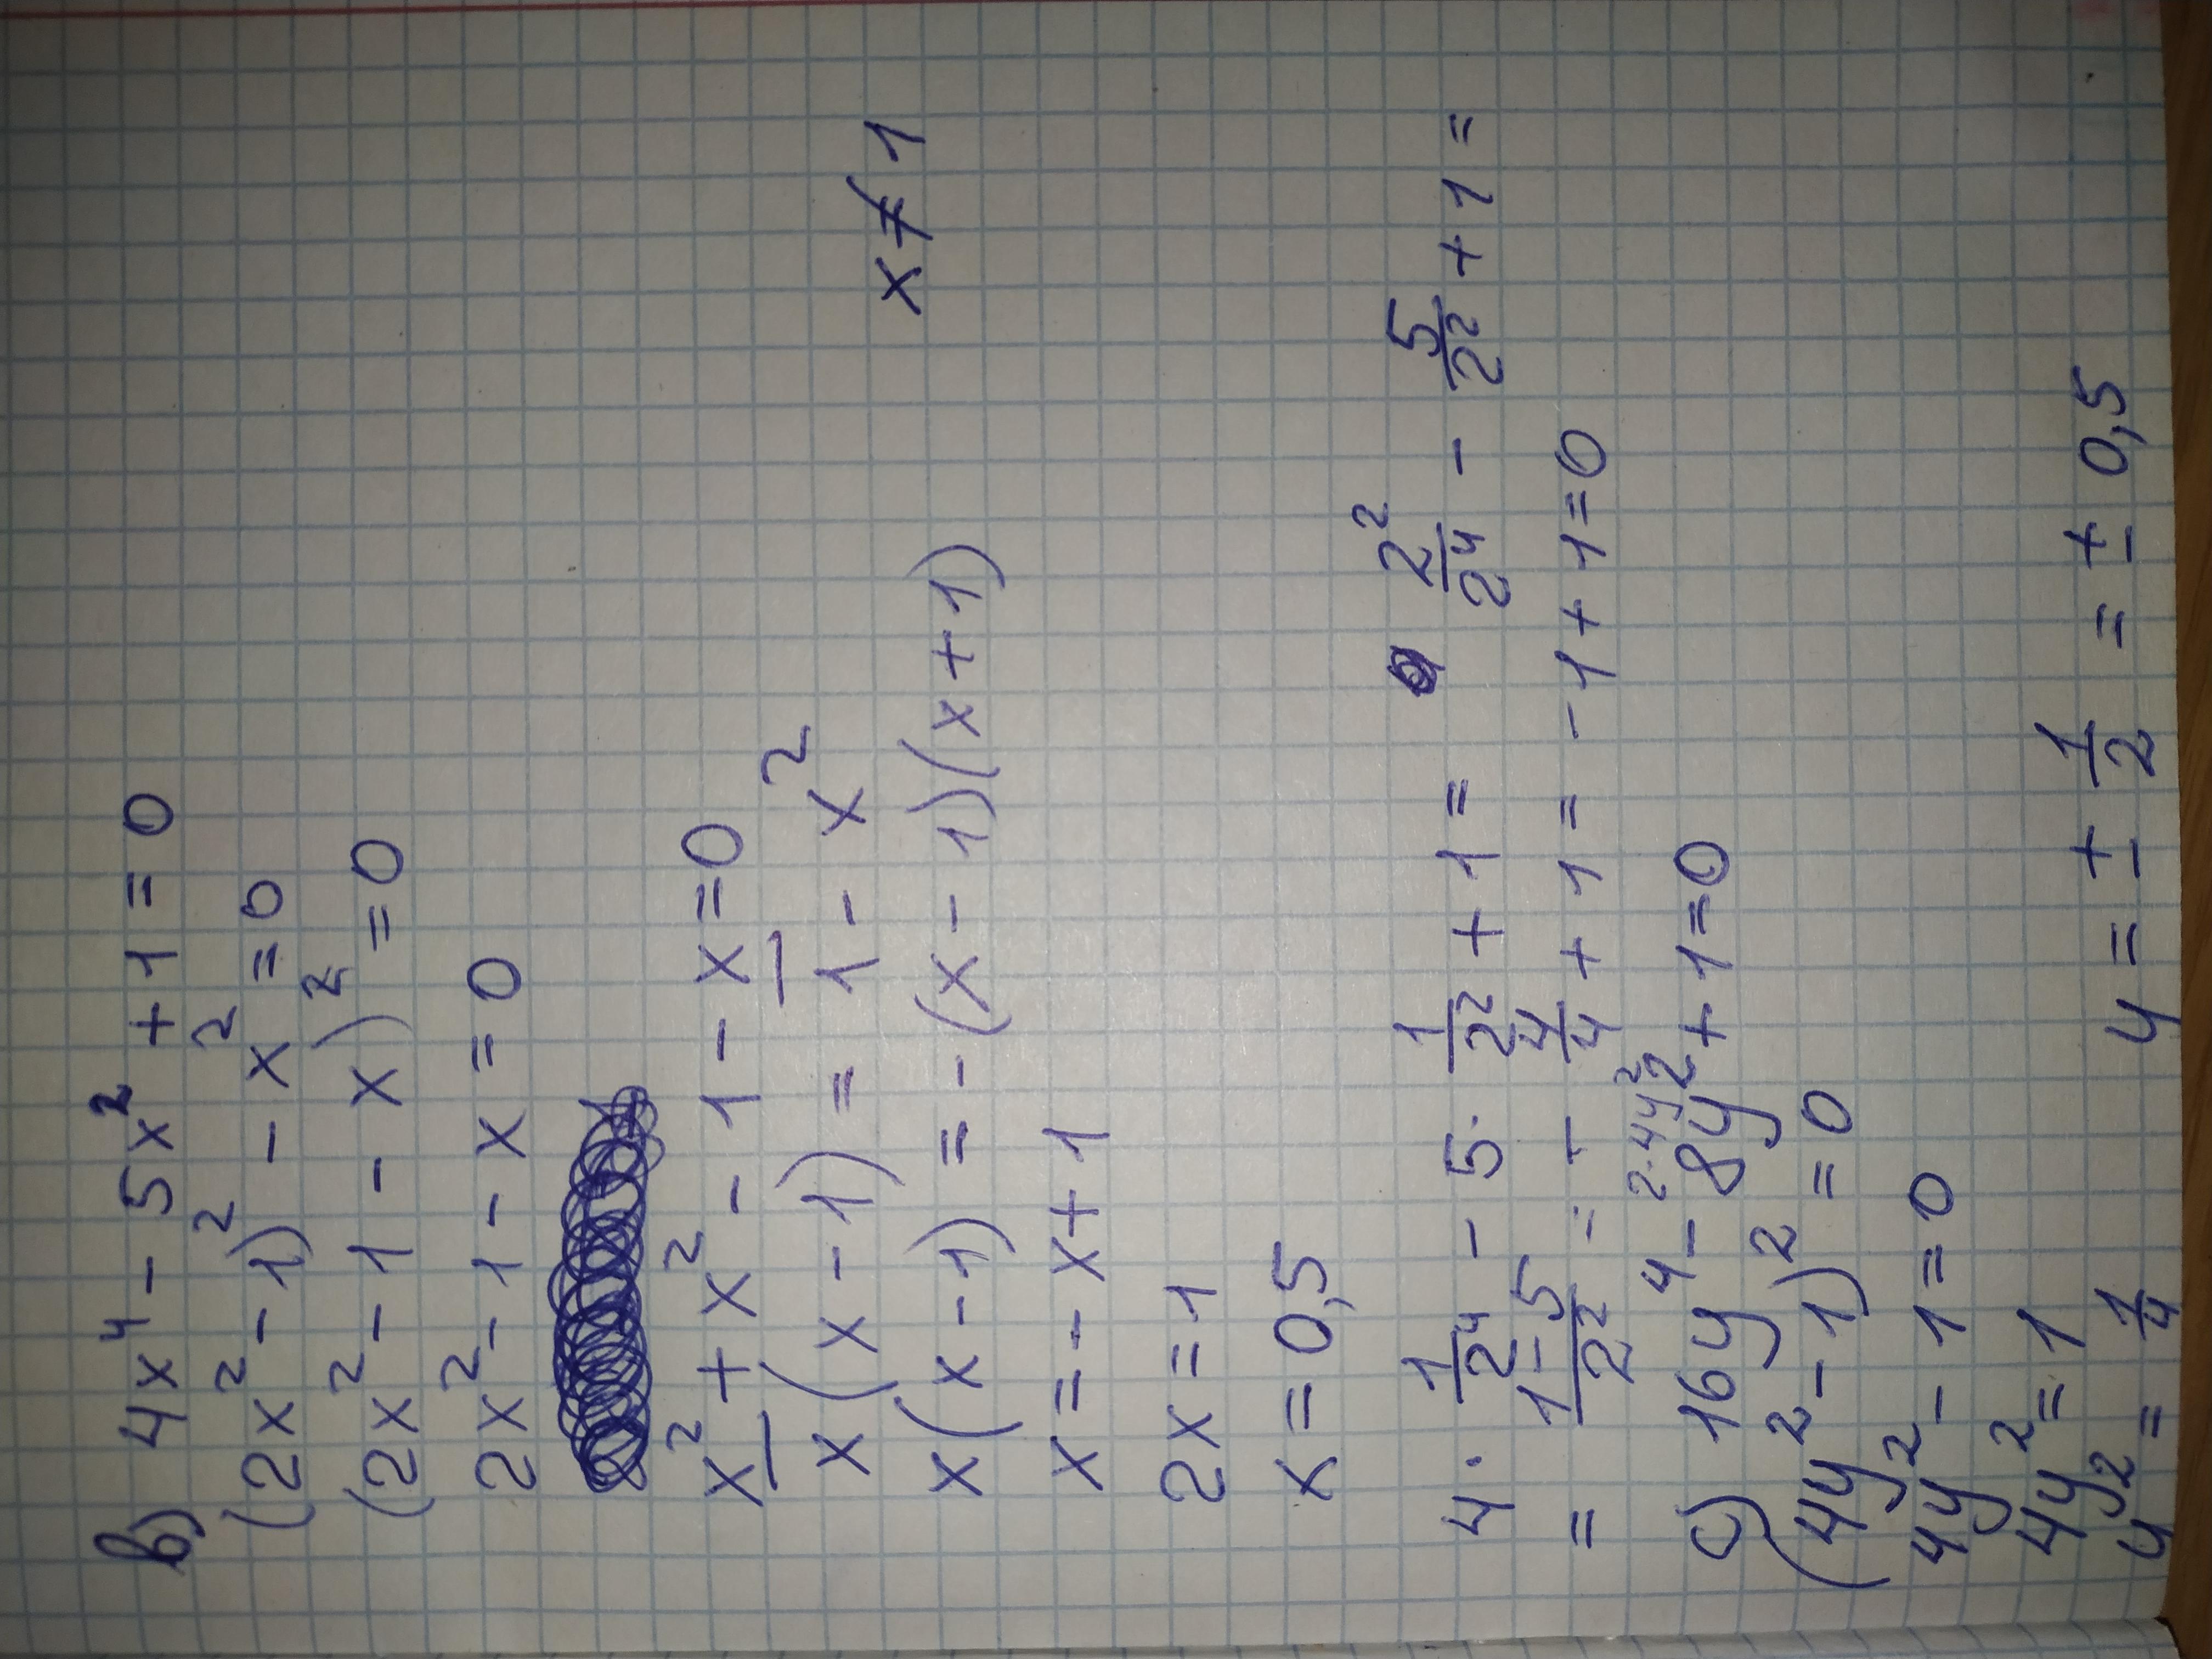 b) 4x⁴ - 5x² + 1 = 0
(2x² - 1)² - x² = 0
(2x² - 1 - x)² = 0
2x² - 1 - x = 0
x² + x² - 1 - x = 0
x(x - 1) = 1 - x²
x ≠ 1
x(x - 1) = -(x - 1)(x + 1)
x = -x + 1
2x = 1
x = 0,5
4 · 1/2⁴ - 5 · 1/2² + 1 = 2²/2⁴ - 5/2² + 1 =
= 1-5/2² = - 4/4 + 1 = -1 + 1 = 0
2·4y²
c) 16y⁴ - 8y² + 1 = 0
(4y² - 1)² = 0
4y² - 1 = 0
4y² = 1
y² = 1/4 y = ± 1/2 = ± 0,5